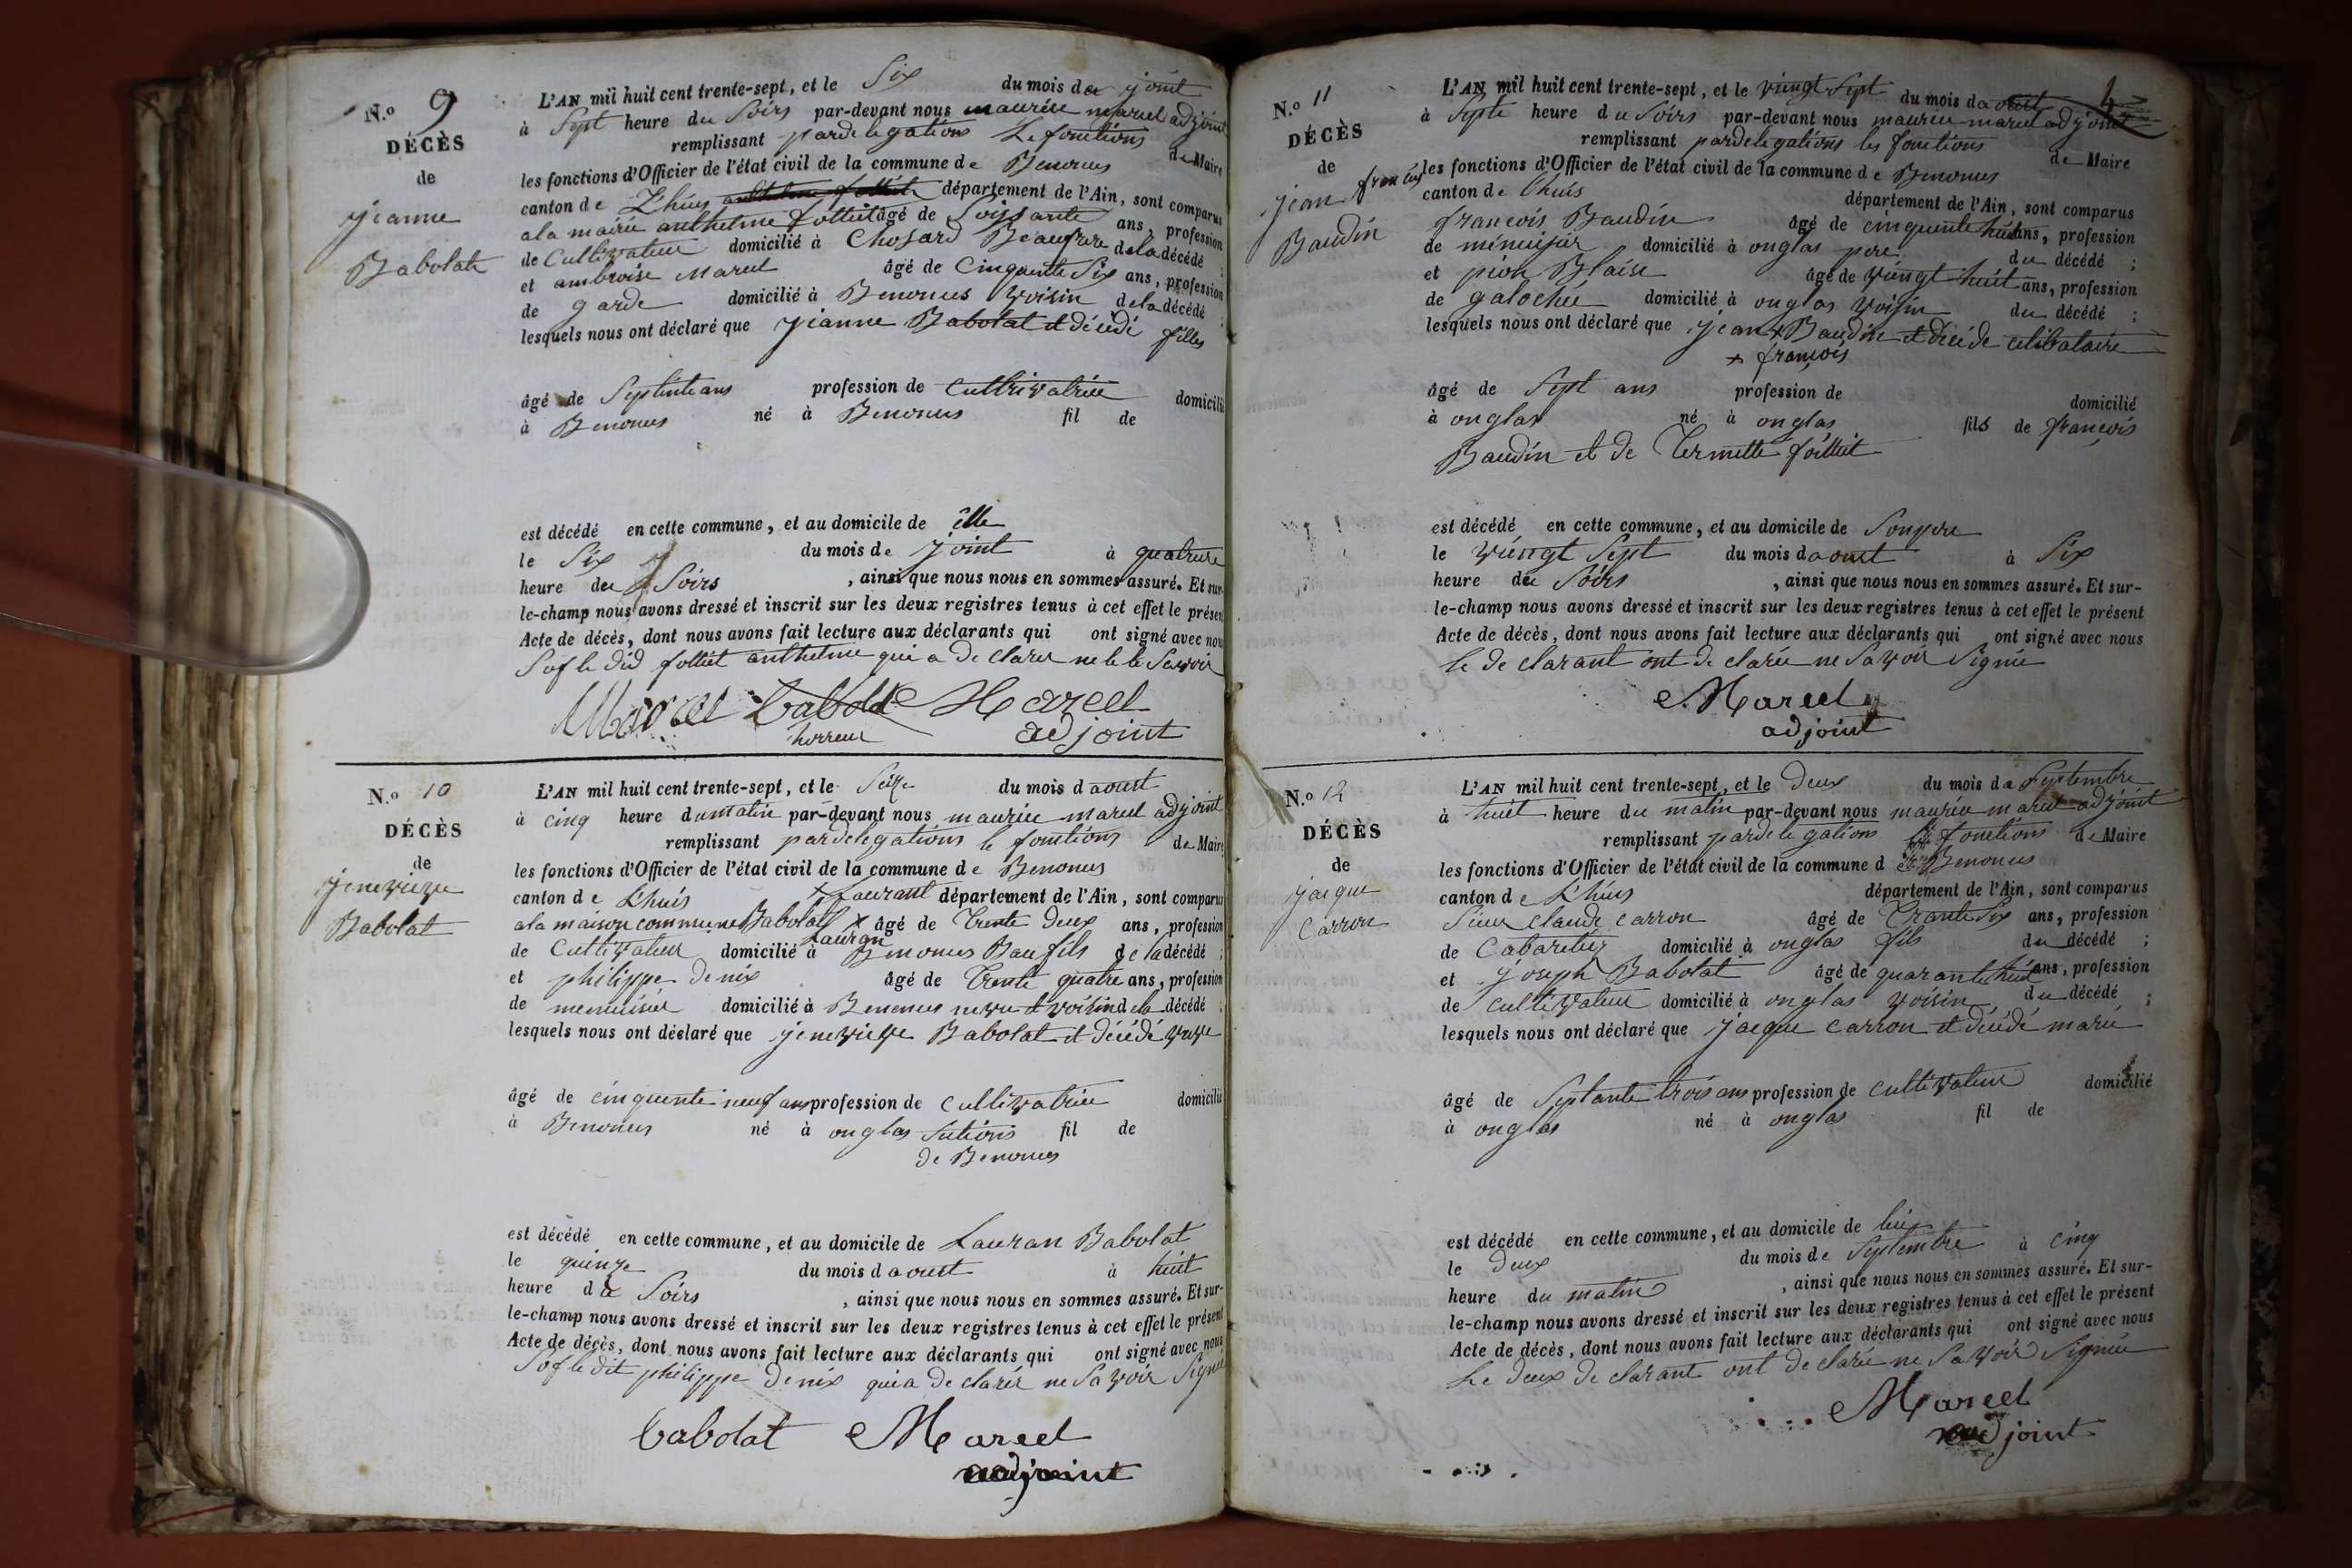 N.o 9
DÉCÈS
de
jeanne
Babolate
L'AN mil huit cent trente-sept, et le Six du mois de joint
à Sept heure du Soirs par-devant nous maurice marcel adjoint
remplissant pardelegations Le fonctions de Maire
les fonctions d'Officier de l'état civil de la commune de Benonces
canton de Lhuis département de l'Ain, sont comparus
a la mairie anthelme folliet âgé de Soissante ans, profession
de Cultivateur domicilié à Chosard Beaufrare de la décédé ;
et ambroise Marcel âgé de Cinquante Six ans, profession
de garde domicilié à Benonces voisin de la décédé ;
lesquels nous ont déclaré que jeanne Babolat et décédé filles
âgé de Septente ans profession de Culttivatrice domicilié
à Benonces né à Benonces fil de
est décédé en cette commune, et au domicile de elle
le Six du mois de joint à quatrure
heure du Soirs , ainsi que nous nous en sommes assuré. Et sur-
le-champ nous avons dressé et inscrit sur les deux registres tenus à cet effet le présent
Acte de décès, dont nous avons fait lecture aux déclarants qui ont signé avec nous
Sof le did folliet anthelme qui a de clarer ne le le Savoir
Marcel babolat Marcel
adjoint
N.o 10
DÉCÈS
de
jenevieve
Babolat
L'AN mil huit cent trente-sept, et le Seize du mois d aoust
à cinq heure du matin par-devant nous maurice marcel adjoint
remplissant pardelegations le fonctions de Maire
les fonctions d'Officier de l'état civil de la commune de Benonces
canton de Lhuis + Laurant département de l'Ain, sont comparus
a la maison commune Babolat + âgé de Trente deux ans, profession
Lauran
de Cultivateur domicilié à Benonces Baufils de la décédé ;
et philippe denix âgé de Trente quatre ans, profession
de menuisier domicilié à Benonces neveu et voisin de la décédé ;
lesquels nous ont déclaré que jenevieve Babolat et décédé veve
âgé de cinquente neuf ans profession de cultivatrice domicilié
à Benonces né à onglas Sutions fil de
de Benonces
est décédé en cette commune, et au domicile de Lauran Babolat
le quinze du mois d aoust à huit
heure du Soirs , ainsi que nous nous en sommes assuré. Et sur-
le-champ nous avons dressé et inscrit sur les deux registres tenus à cet effet le présent
Acte de décès, dont nous avons fait lecture aux déclarants qui ont signé avec nous
Sof le dit philippe denix qui a de clarer ne Savoir Signer
babolat Marcel
adjoint
4
N.o 11
DÉCÈS
de
jean francois
Baudin
L'AN mil huit cent trente-sept, et le vingt Sept du mois d aout
à Septe heure du Soirs par-devant nous maurice marcel adjoint
remplissant pardelegations les fonctions de Maire
les fonctions d'Officier de l'état civil de la commune de Benonces
canton de Lhuis département de l'Ain, sont comparus
francois Baudin âgé de cinquente huit ans, profession
de minuisier domicilié à onglas pere du décédé ;
et pion Blaise âgé de vingt huit ans, profession
de galochié domicilié à onglas voisin du décédé ;
lesquels nous ont déclaré que jean + Baudin et décédé celibataire
+ francois
âgé de Sept ans profession de domicilié
à onglas né à onglas fils de francois
Baudin et de Termette folliet
est décédé en cette commune, et au domicile de Sonpere
le vingt Sept du mois d aout à Six
heure du Soirs , ainsi que nous nous en sommes assuré. Et sur-
le-champ nous avons dressé et inscrit sur les deux registres tenus à cet effet le présent
Acte de décès, dont nous avons fait lecture aux déclarants qui ont signé avec nous
le de clarant ont de clarée ne Savoir Signée
Marcel
adjoint
N.o 12
DÉCÈS
de
jacque
Carron
L'AN mil huit cent trente-sept, et le Deux du mois de Septembre
à huit heure du matin par-devant nous maurice marcel adjoint
remplissant pardelegations le fonctions de Maire
les fonctions d'Officier de l'état civil de la commune de Benonces
canton de Lhuis département de l'Ain, sont comparus
Sieur Claude Carron âgé de Trante Six ans, profession
de Cabaretier domicilié à onglas fils du décédé ;
et joseph Babolat âgé de quarante huit ans, profession
de cultivateur domicilié à onglas voisin du décédé ;
lesquels nous ont déclaré que jacque Carron et décédé marié
âgé de Septante trois ans profession de cultivateur domicilié
à onglas né à onglas fil de
est décédé en cette commune, et au domicile de lui
le Deux du mois de Septembre à cinq
heure du matin , ainsi que nous nous en sommes assuré. Et sur-
le-champ nous avons dressé et inscrit sur les deux registres tenus à cet effet le présent
Acte de décès, dont nous avons fait lecture aux déclarants qui ont signé avec nous
Le deux de clarant ont de clarée ne Savoir Signée
Marcel
adjoint